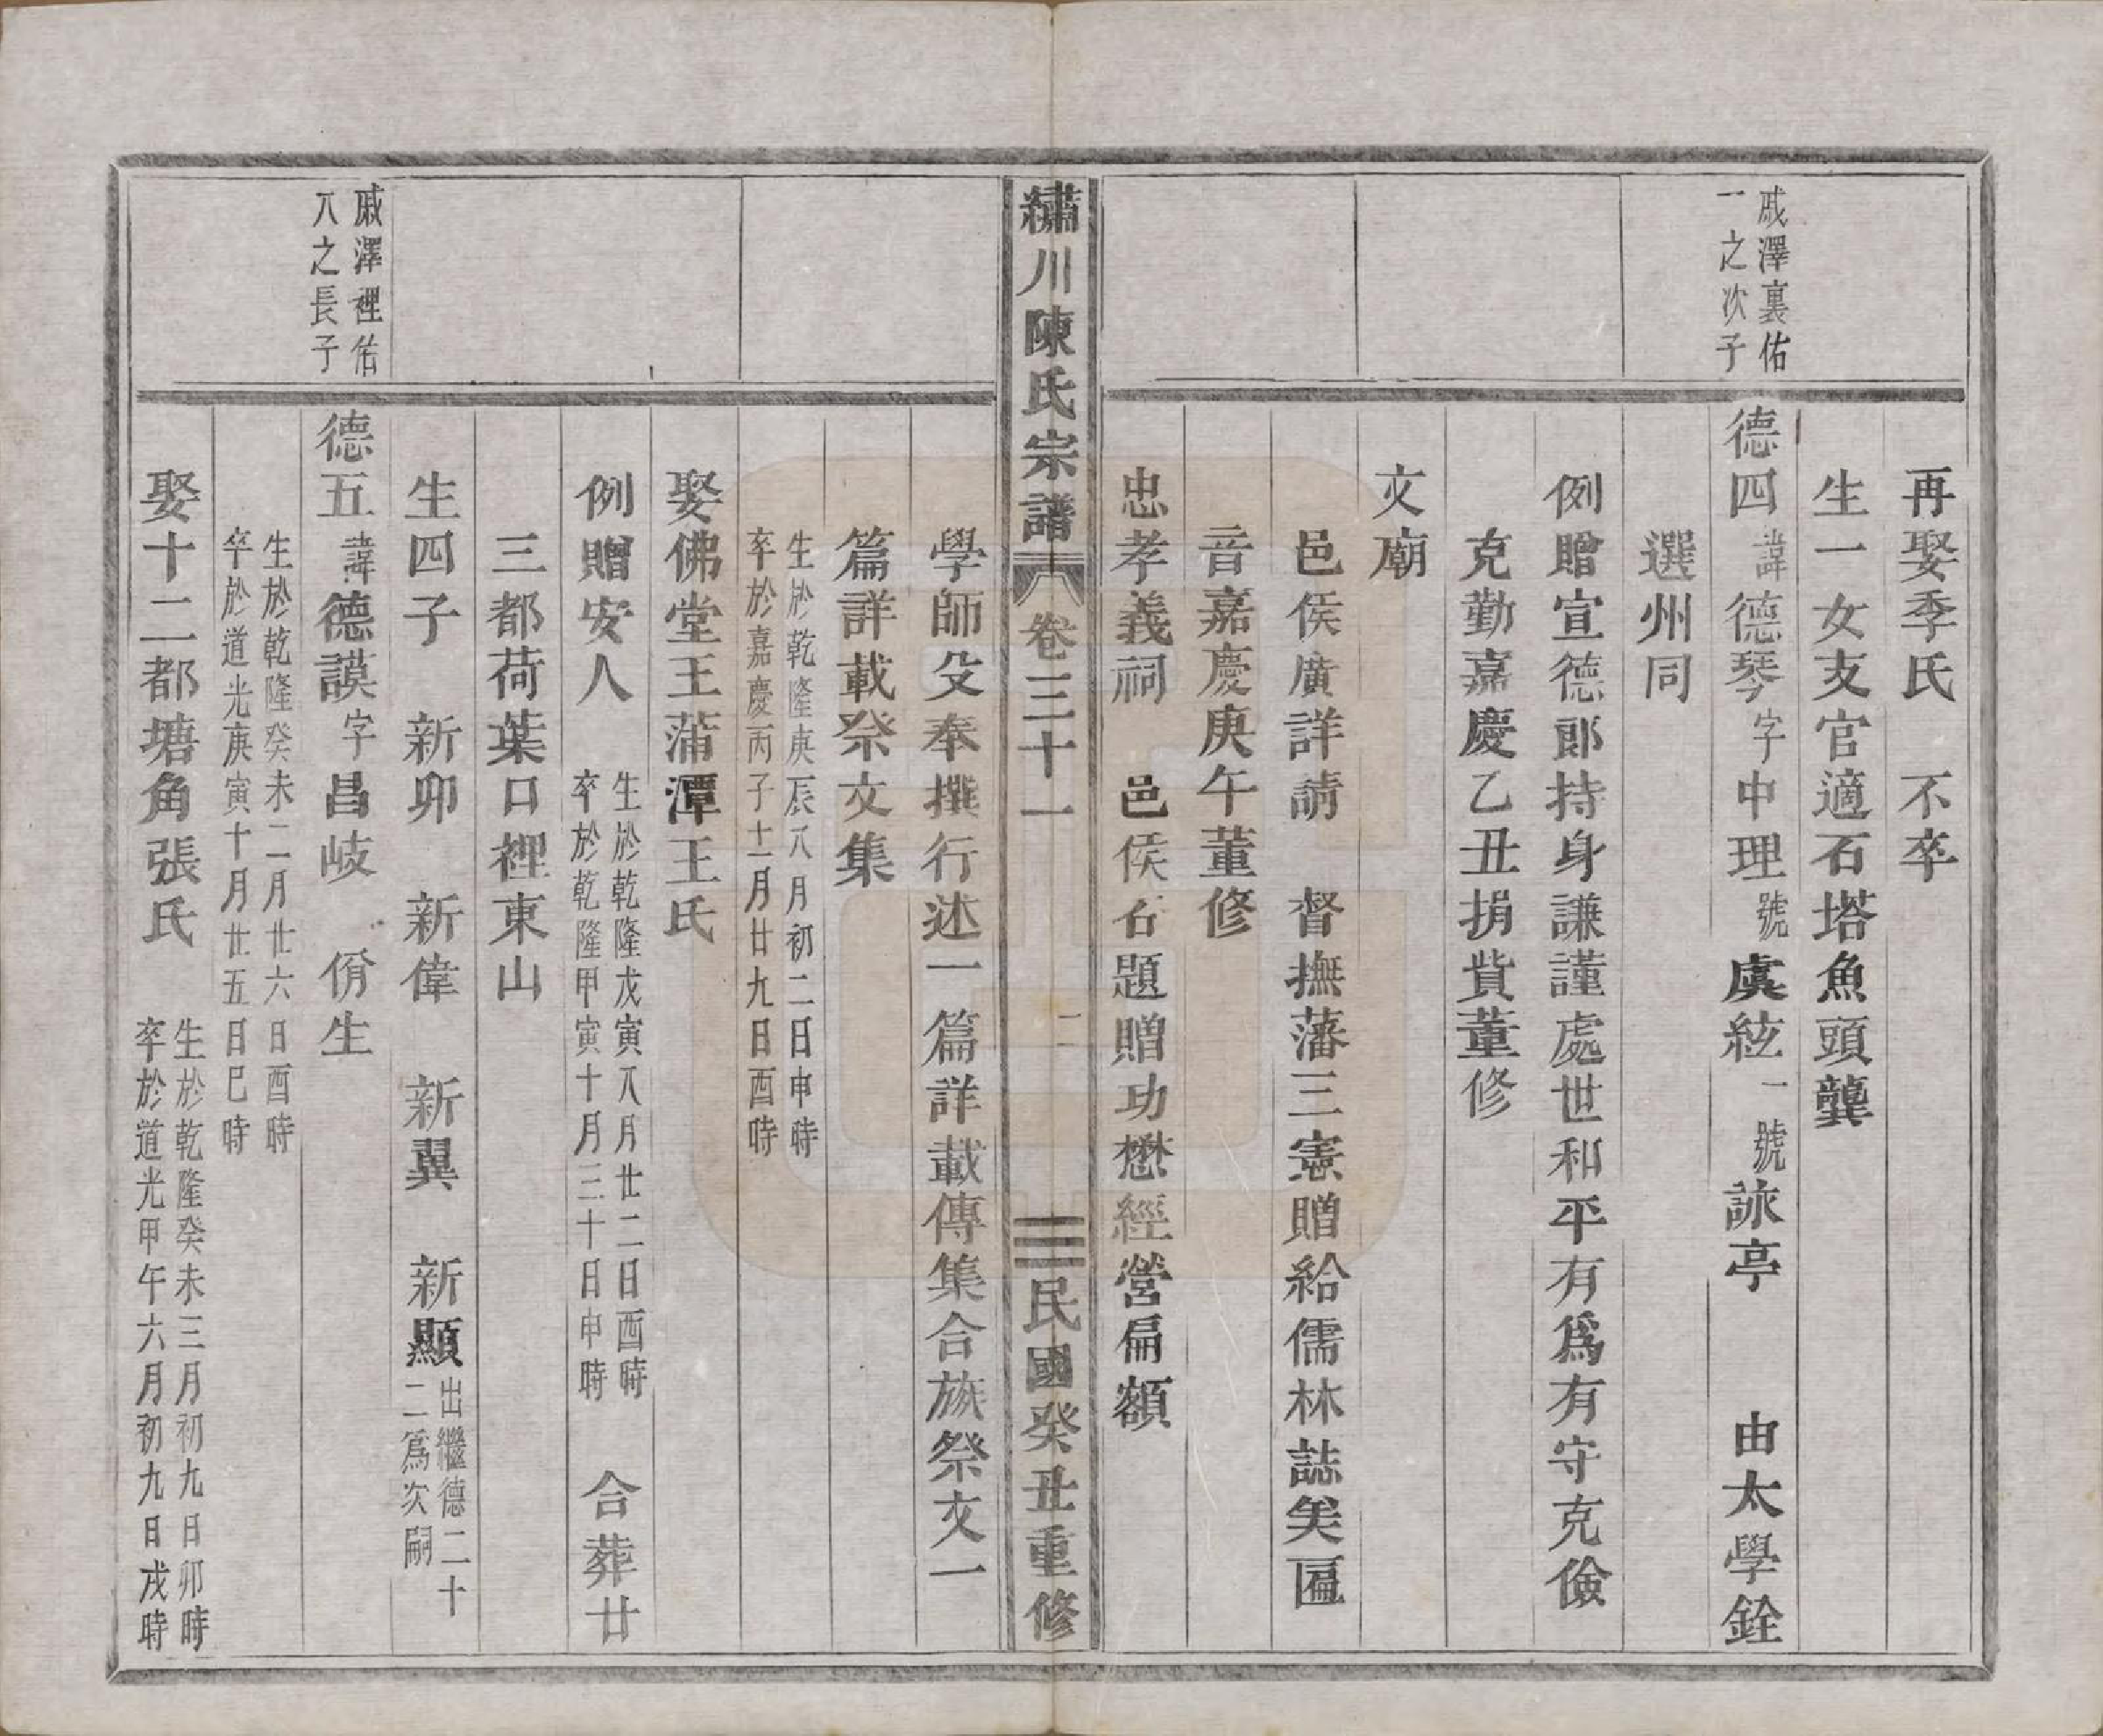 再娶季氏　不卒
生一女支官適石塔魚頭龔
戚澤裏佑
一之次子
德四諱德琴字中理號虞絃一號詠亭　由太學銓
選州同
例贈宣德郎持身謙謹處世和平有為有守克儉
克勤嘉慶乙丑捐貲董修
文廟
邑侯廣詳請　督撫藩三憲贈給儒林誌美匾
音嘉慶庚午董修
忠孝義祠　邑侯石題贈功懋經營扁額
繡川陳氏宗譜　卷三十一　二　民國癸丑重修
學師殳奉撰行述一篇詳載傳集合族祭文一
篇詳載祭文集
生於乾隆庚辰八月初二日申時
卒於嘉慶丙子十一月廿九日酉時
娶佛堂王蒲潭王氏
例贈安人
生於乾隆戊寅八月廿二日酉時
卒於乾隆甲寅十月三十日申時
合葬廿
三都荷葉口裡東山
生四子　新卯　新偉　新翼　新顯
出繼德二十
二為次嗣
戚澤裡佑
八之長子
德五諱德謨字昌岐　佾生
生於乾隆癸未二月廿六日酉時
卒於道光庚寅十月廿五日巳時
娶十二都塘角張氏
生於乾隆癸未三月初九日卯時
卒於道光甲午六月初九日戌時